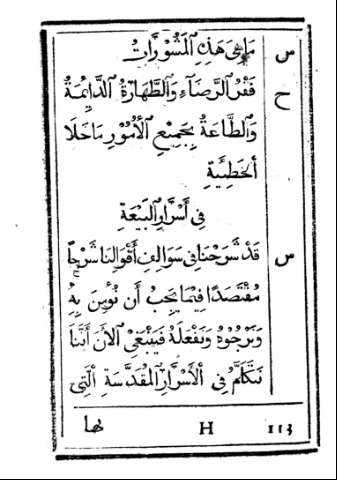 س مَا هِىَ هَذِهِ الْمَشُوْرَاتُ
ح فَقْرُ الرَّضَآءِ وَالطَّهَارَةُ الدَّايِمَةُ
وَالطَّاعَةُ بِجَمِيْعِ الْأُمُوْرِ مَا خَلَا
الْخَطِيَّةِ
فِي أَسْرَارِ الْبَيْعَةِ
س قَدْ شَرَحْنَا فِي سَوَالِفِ أَقْوَالِنَا شَرْحًا
مُقْتَصَدًا فِيْمَا يَجِبُ أَن نُوْمِنَ بِهِ
وَنَرْجُوْهُ وَنَفْعَلَهُ فَيَنْبَغِي الْآنَ أَنَّنَا
نَتَكَلَّمُ فِي الْأَسْرَارِ الْمُقَدَّسَةِ الَّتِي
113 H لها